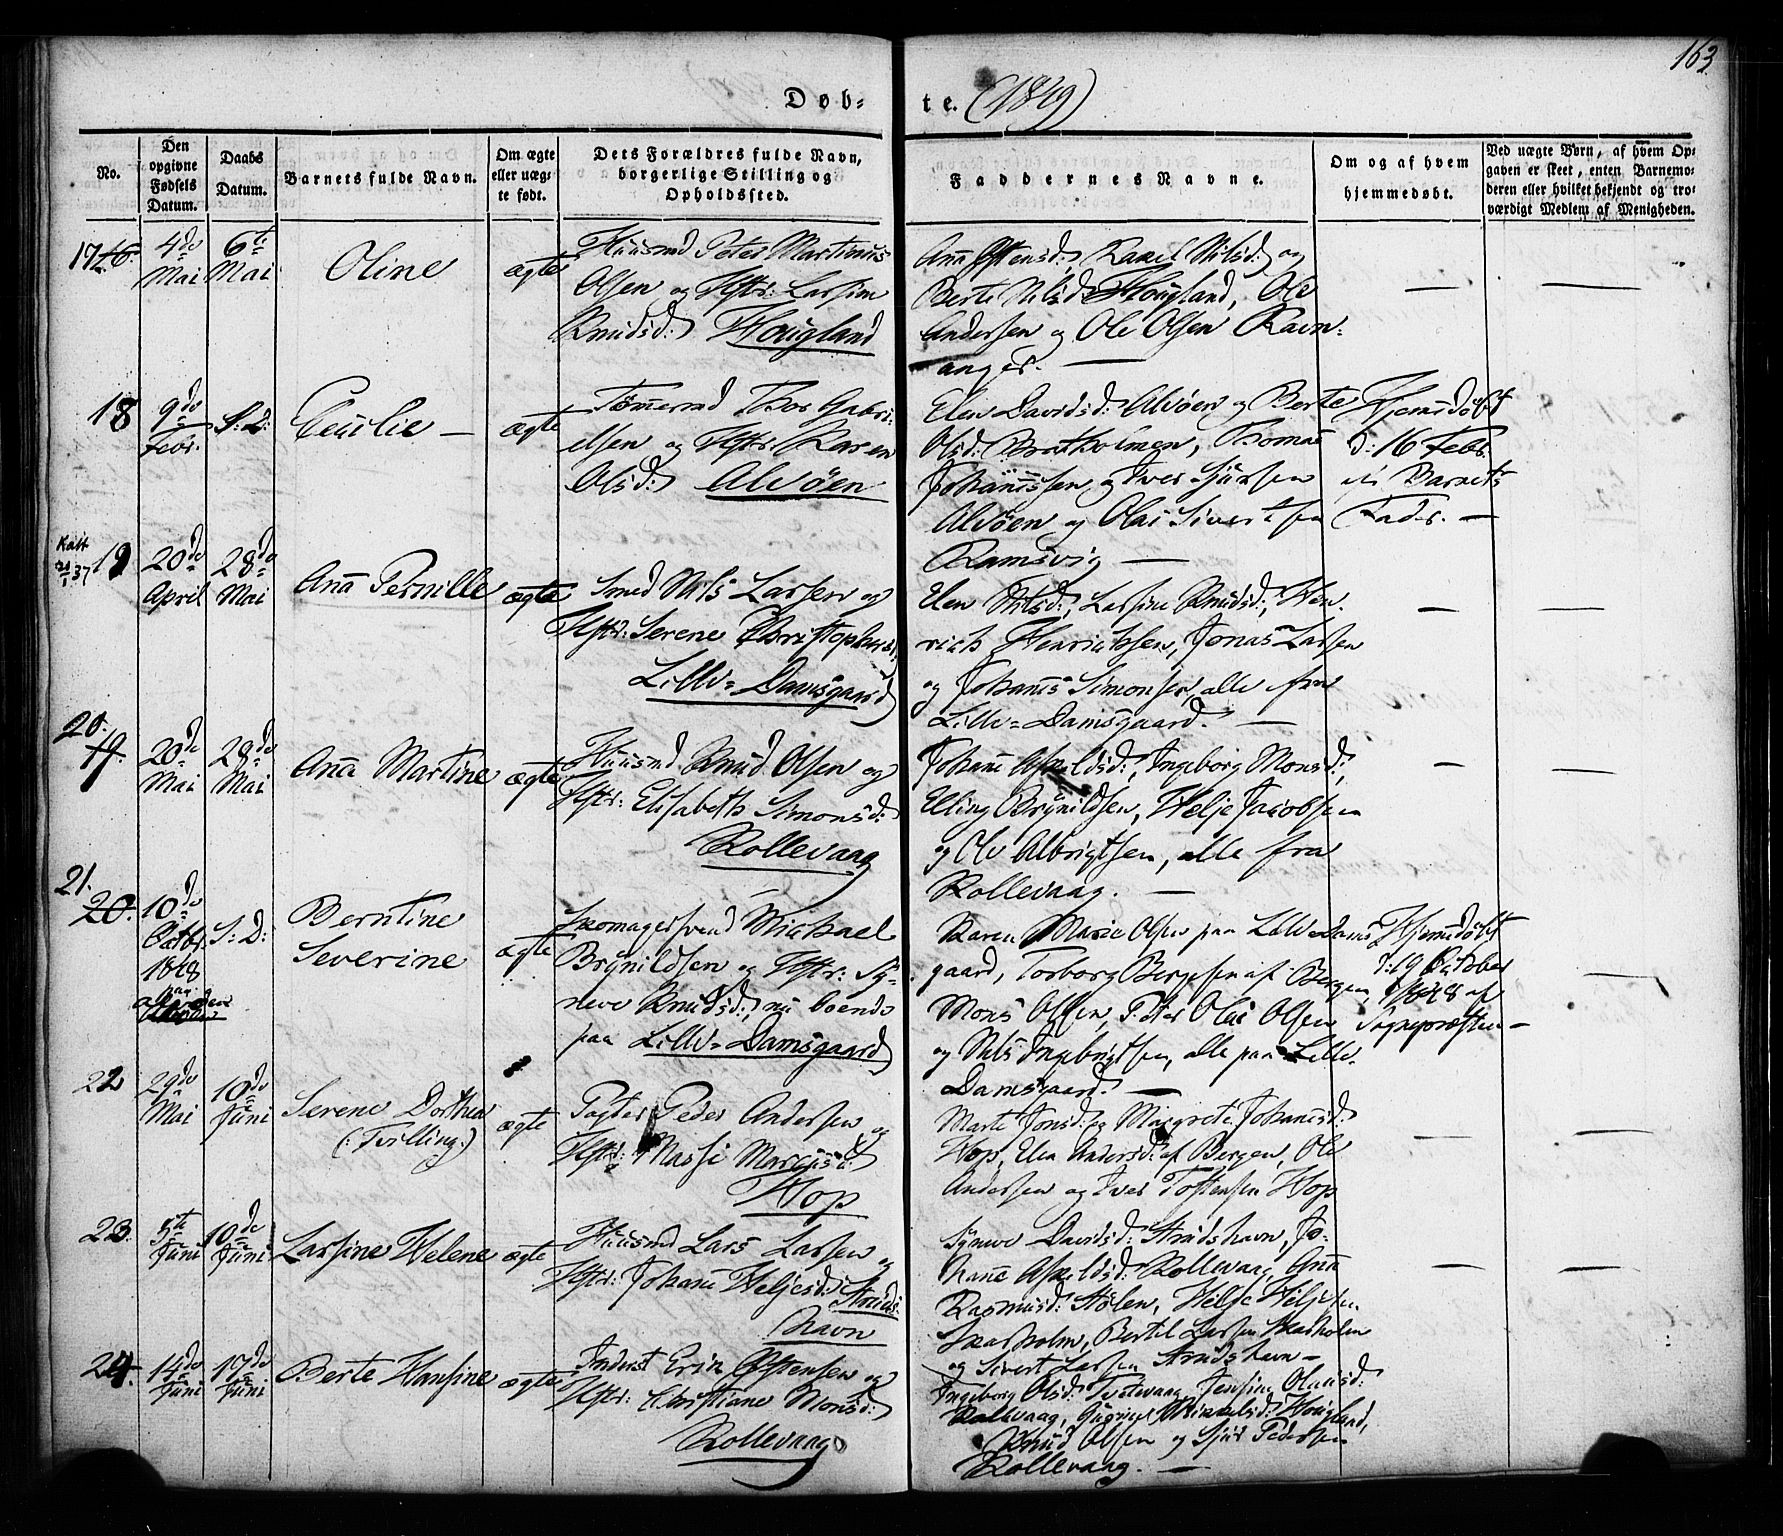 163
Døb- te. (1849)
No.
Den opgivne Fødsels Datum.
Daabs Datum.
Barnets fulde Navn.
Om ægte eller uægte født.
Dets Forældres fulde Navn, borgerlige Stilling og Opholdssted.
Faddernes Navne.
Om og af hvem hjemmedøbt.
Ved uægte Børn, af hvem Opgaven er skeet, enten Barnemoderen eller hvilket bekjendt og troværdigt Medlem af Menigheden.
17 16. 4de Mai 6te Mai Oline ægte
Huusmd Peter Martinus
Olsen og Hstr: Larsine
Knudsd: Hougland
Ana Østensd:, Rakel Nilsd: og
Berte Nilsd: Hougland, Ole
Andersen og Ole Olsen Ravn-
anger. —
18 9de Febr. S: D: Cecilie — ægte
Tømmermd Thor Gabri-
elsen og Hstr: Karen
Olsd: Alvøen
Elen Davidsd: Alvøen og Berte
Olsd: Bratholmen, Thomas
Johannssen og Iver Sjursen
Alvøen og Olai Sivertsen
Ramsvig —
Hjemdøbt
d: 16 Febr.
af Barnets
Fader. —
19 20de April 28de Mai Ana Pernille ægte
Smed Nils Larsen og
Hstr: Serene Christophersd:
Lille=Damsgaard
Elen Nilsd:, Larsine Knudsd:, Hen-
rich Henrichsen, Jonas Larsen
og Johans Simonsen, alle fra
Lille=Damsgaard. —
20. 19. 20de Mai 28de Mai Ana Martine ægte
Huusmd Knud Olsen og
Hstr: Elisabeth Simonsd:
Rollevaag
Johane Askeldsd:, Ingeborg Monsd:,
Elling Brynildsen, Helje Jacobsen
og Ole Albrigtsen, alle fra
Rollevaag. —
21. 20. 10de Octbr 1848 S: D: Berntine
Severine ægte
Skomagersvend Michael
Brynildsen og Hstr: Sy-
neve Knudsd:, nu boende
paa Lille=Damsgaard
Karen Marie Olsen paa Lille Dams-
gaard, Torborg Bergesen af Bergen,
Mons Olsen, Peter Olai Olsen
og Nils Ingebrigtsen, alle paa Lille-
Damsgaard. —
Hjemdøbt
d: 19 October
1848 af
Sognepræsten —
22 29de Mai 10de Juni Serene Dorthea
(: Tvilling :) ægte
Pagter Peder Andersen og
Hstr: Massi Marcusd:
Hop
Marte Jonsd: og Margrete Johansd:
Hop, Elen Andersd: af Bergen, Ole
Andersen og Iver Tostensen Hop
23. 5te Juni 10de Juni Larsine Helene ægte
Huusmd Lars Larsen og
Hstr: Johane Heljesd: Struds-
havn
Synneve Davidsd: Strudshavn, Jo-
hane Askeldsd: Rollevaag, Ana
Rasmusd: Stølen, Helje Heljesen
Skarholm, Bertel Larsen Skarholm
og Sivert Larsen Strudshavn —
24. 14de Juni 17de Juni Berte Hansine ægte
Inderst Erik Østensen og
Hstr: Christiane Monsd:
Rollevaag
Ingeborg Olsd: Tvetevaag, Jensine Olausd:
Rollevaag, Gurine Mikkelsd: Hougland,
Knud Olsen og Sjur Pedersen
Rollevaag. —